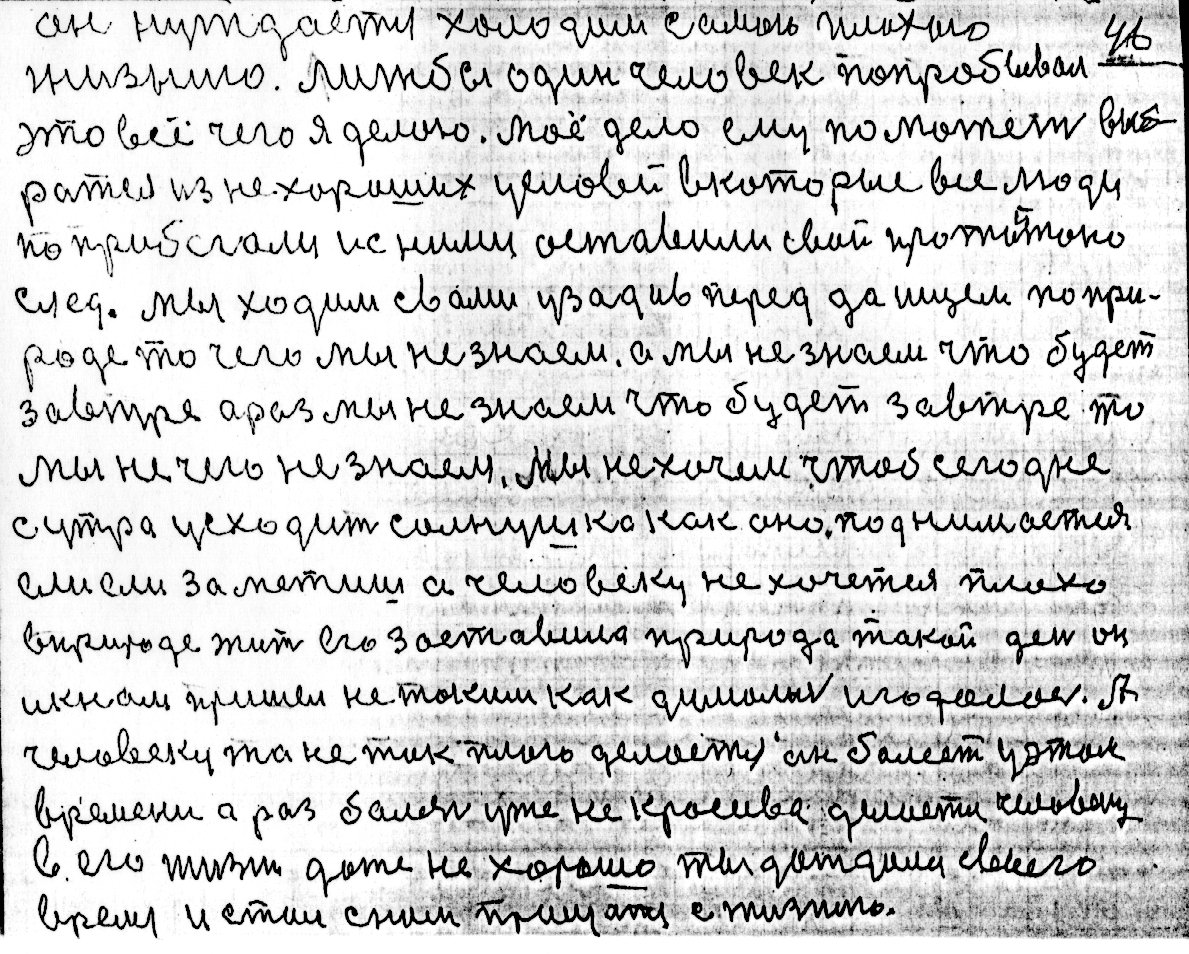 он нуждается холодим самою плохою 46
жизнию. Лижбы один человек попробывал
это всё чего я делаю. моё дело ему поможет выб
рател из не хороших условей вкоторые все люди
по прибегали ис ними оставили свой протитоко
след. мы ходим свами узад ив перед да ищем по при-
роде то чего мы не знаем. а мы не знаем что будет
завтре а раз мы не знаем что будет завтре то
мы не чего не знаем. Мы не хочем чтоб сегодне
с утра усходит солнушка как оно. поднимается
если заметиш а человеку не хочется плохо
вприроде жит его заставила природа такой ден он
ик нам пришел не таким как думалы и годалос. А
человеку та не так плого делается он болеет у этом
времени а раз болен уже не красива делаети человеку
в его жизни даже не хорошо ты дождала своего
время и стал сним прощатц с жизнию.